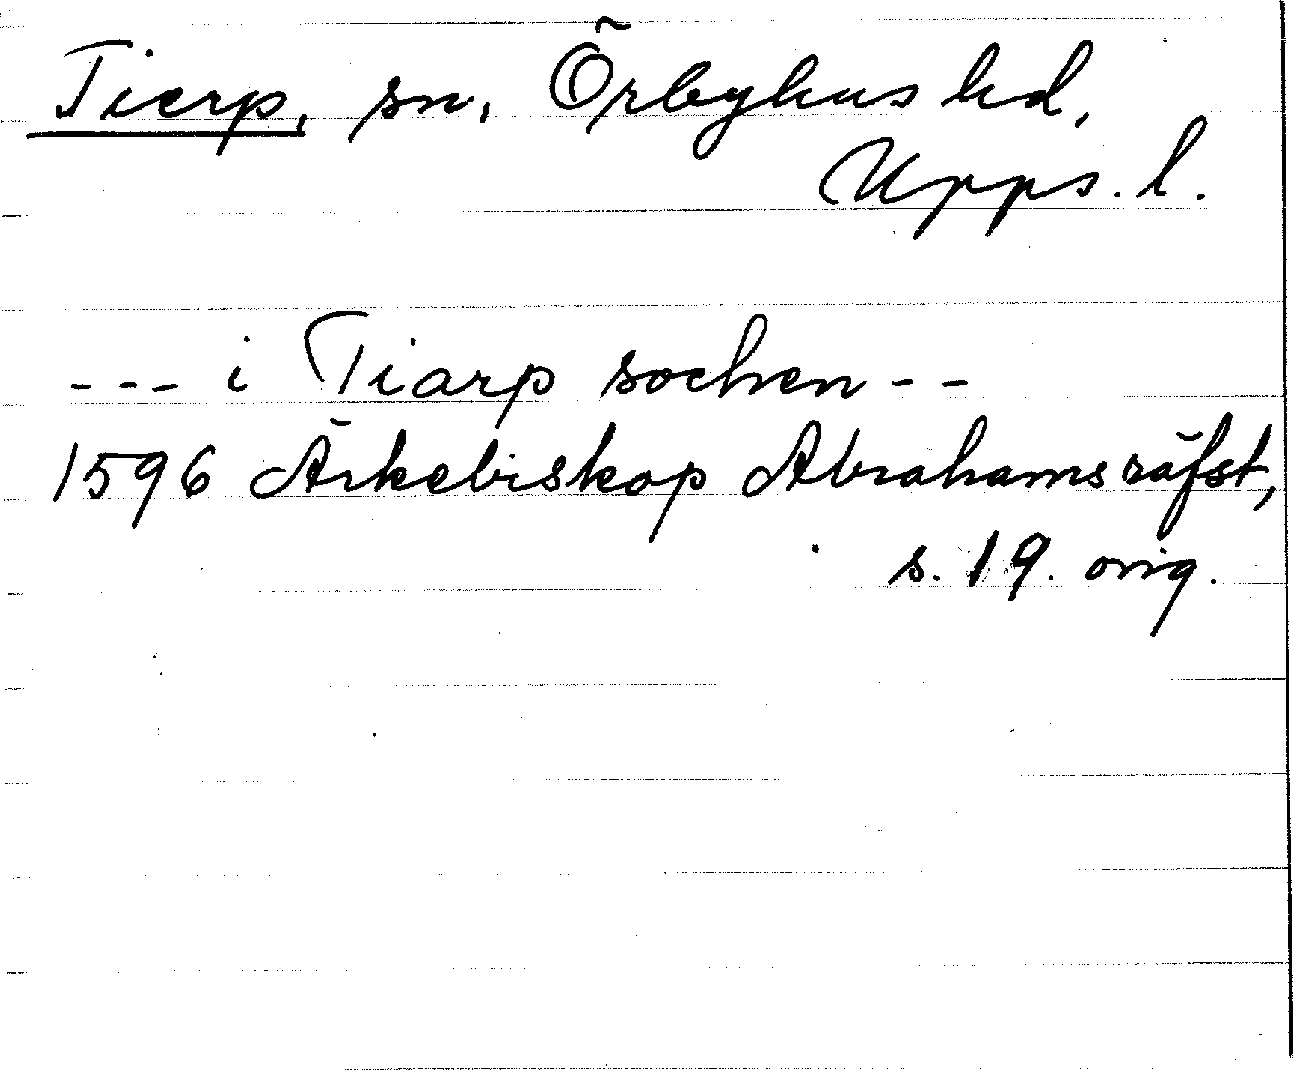 Tierp, sn, Örbyhus hd,
Upps. l.
--- i Tiarp sochen --
1596 Ärkebiskop Abrahams räfst,
s. 19. orig.